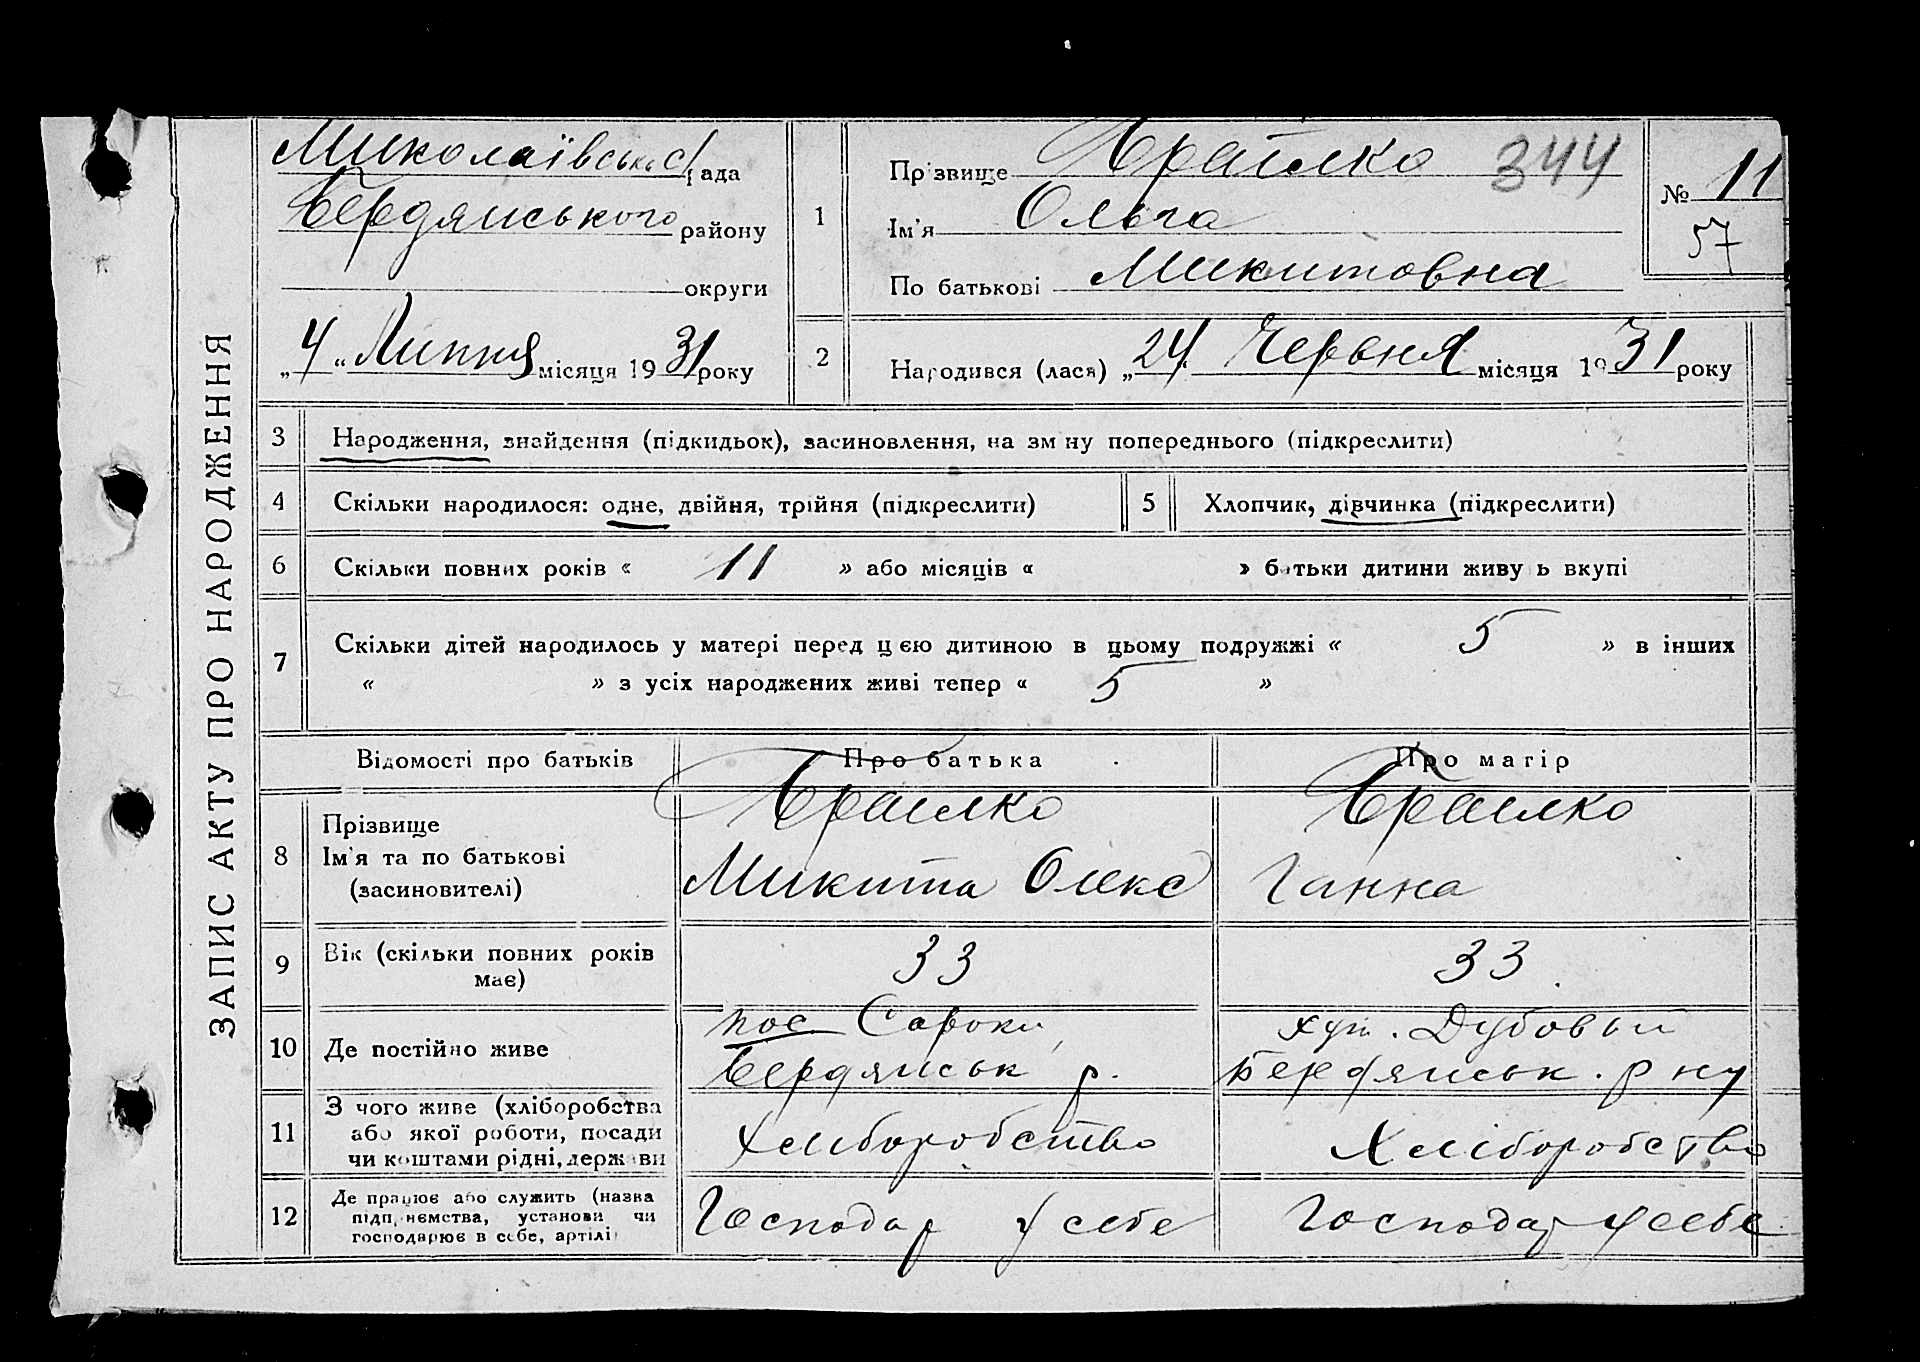 ЗАПИС АКТУ ПРО НАРОДЖЕННЯ
Миколаївська с/рада
Бердянського району
округи
„4" Липня місяця 1931 року
1
Прізвище Браілко 344
Ім'я Ольга
По батькові Микитовна
№ 11
57
2
Народився (лася) „24" Червня місяця 1931 року
3 Народження, знайдення (підкидьок), засиновлення, на зміну попереднього (підкреслити)
4 Скільки народилося: одне, двійня, трійня (підкреслити) 5 Хлопчик, дівчинка (підкреслити)
6 Скільки повних років « 11 » або місяців « » батьки дитини живуть вкупі
7 Скільки дітей народилось у матері перед цією дитиною в цьому подружжі « 5 » в інших
« » з усіх народжених живі тепер « 5 »
Відомості про батьків Про батька Про матір
8 Прізвище
Ім'я та по батькові
(засиновителі)
Браілко
Микита Олекс
Браілко
Ганна
9 Вік (скільки повних років
має)
33
33
10 Де постійно живе
пос. Сороки
Бердянськ р.
хут. Дубовый
Бердянськ. р ну
11 З чого живе (хліборобства
або якої роботи, посади
чи коштами рідні, держави
Хліборобство
Хліборобство
12 Де працює або служить (назва
підприємства, установи чи
господарює в себе, артілі)
Господар у себе
Господар у себе